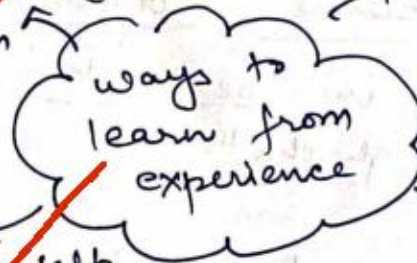 ways to
learn from
experience